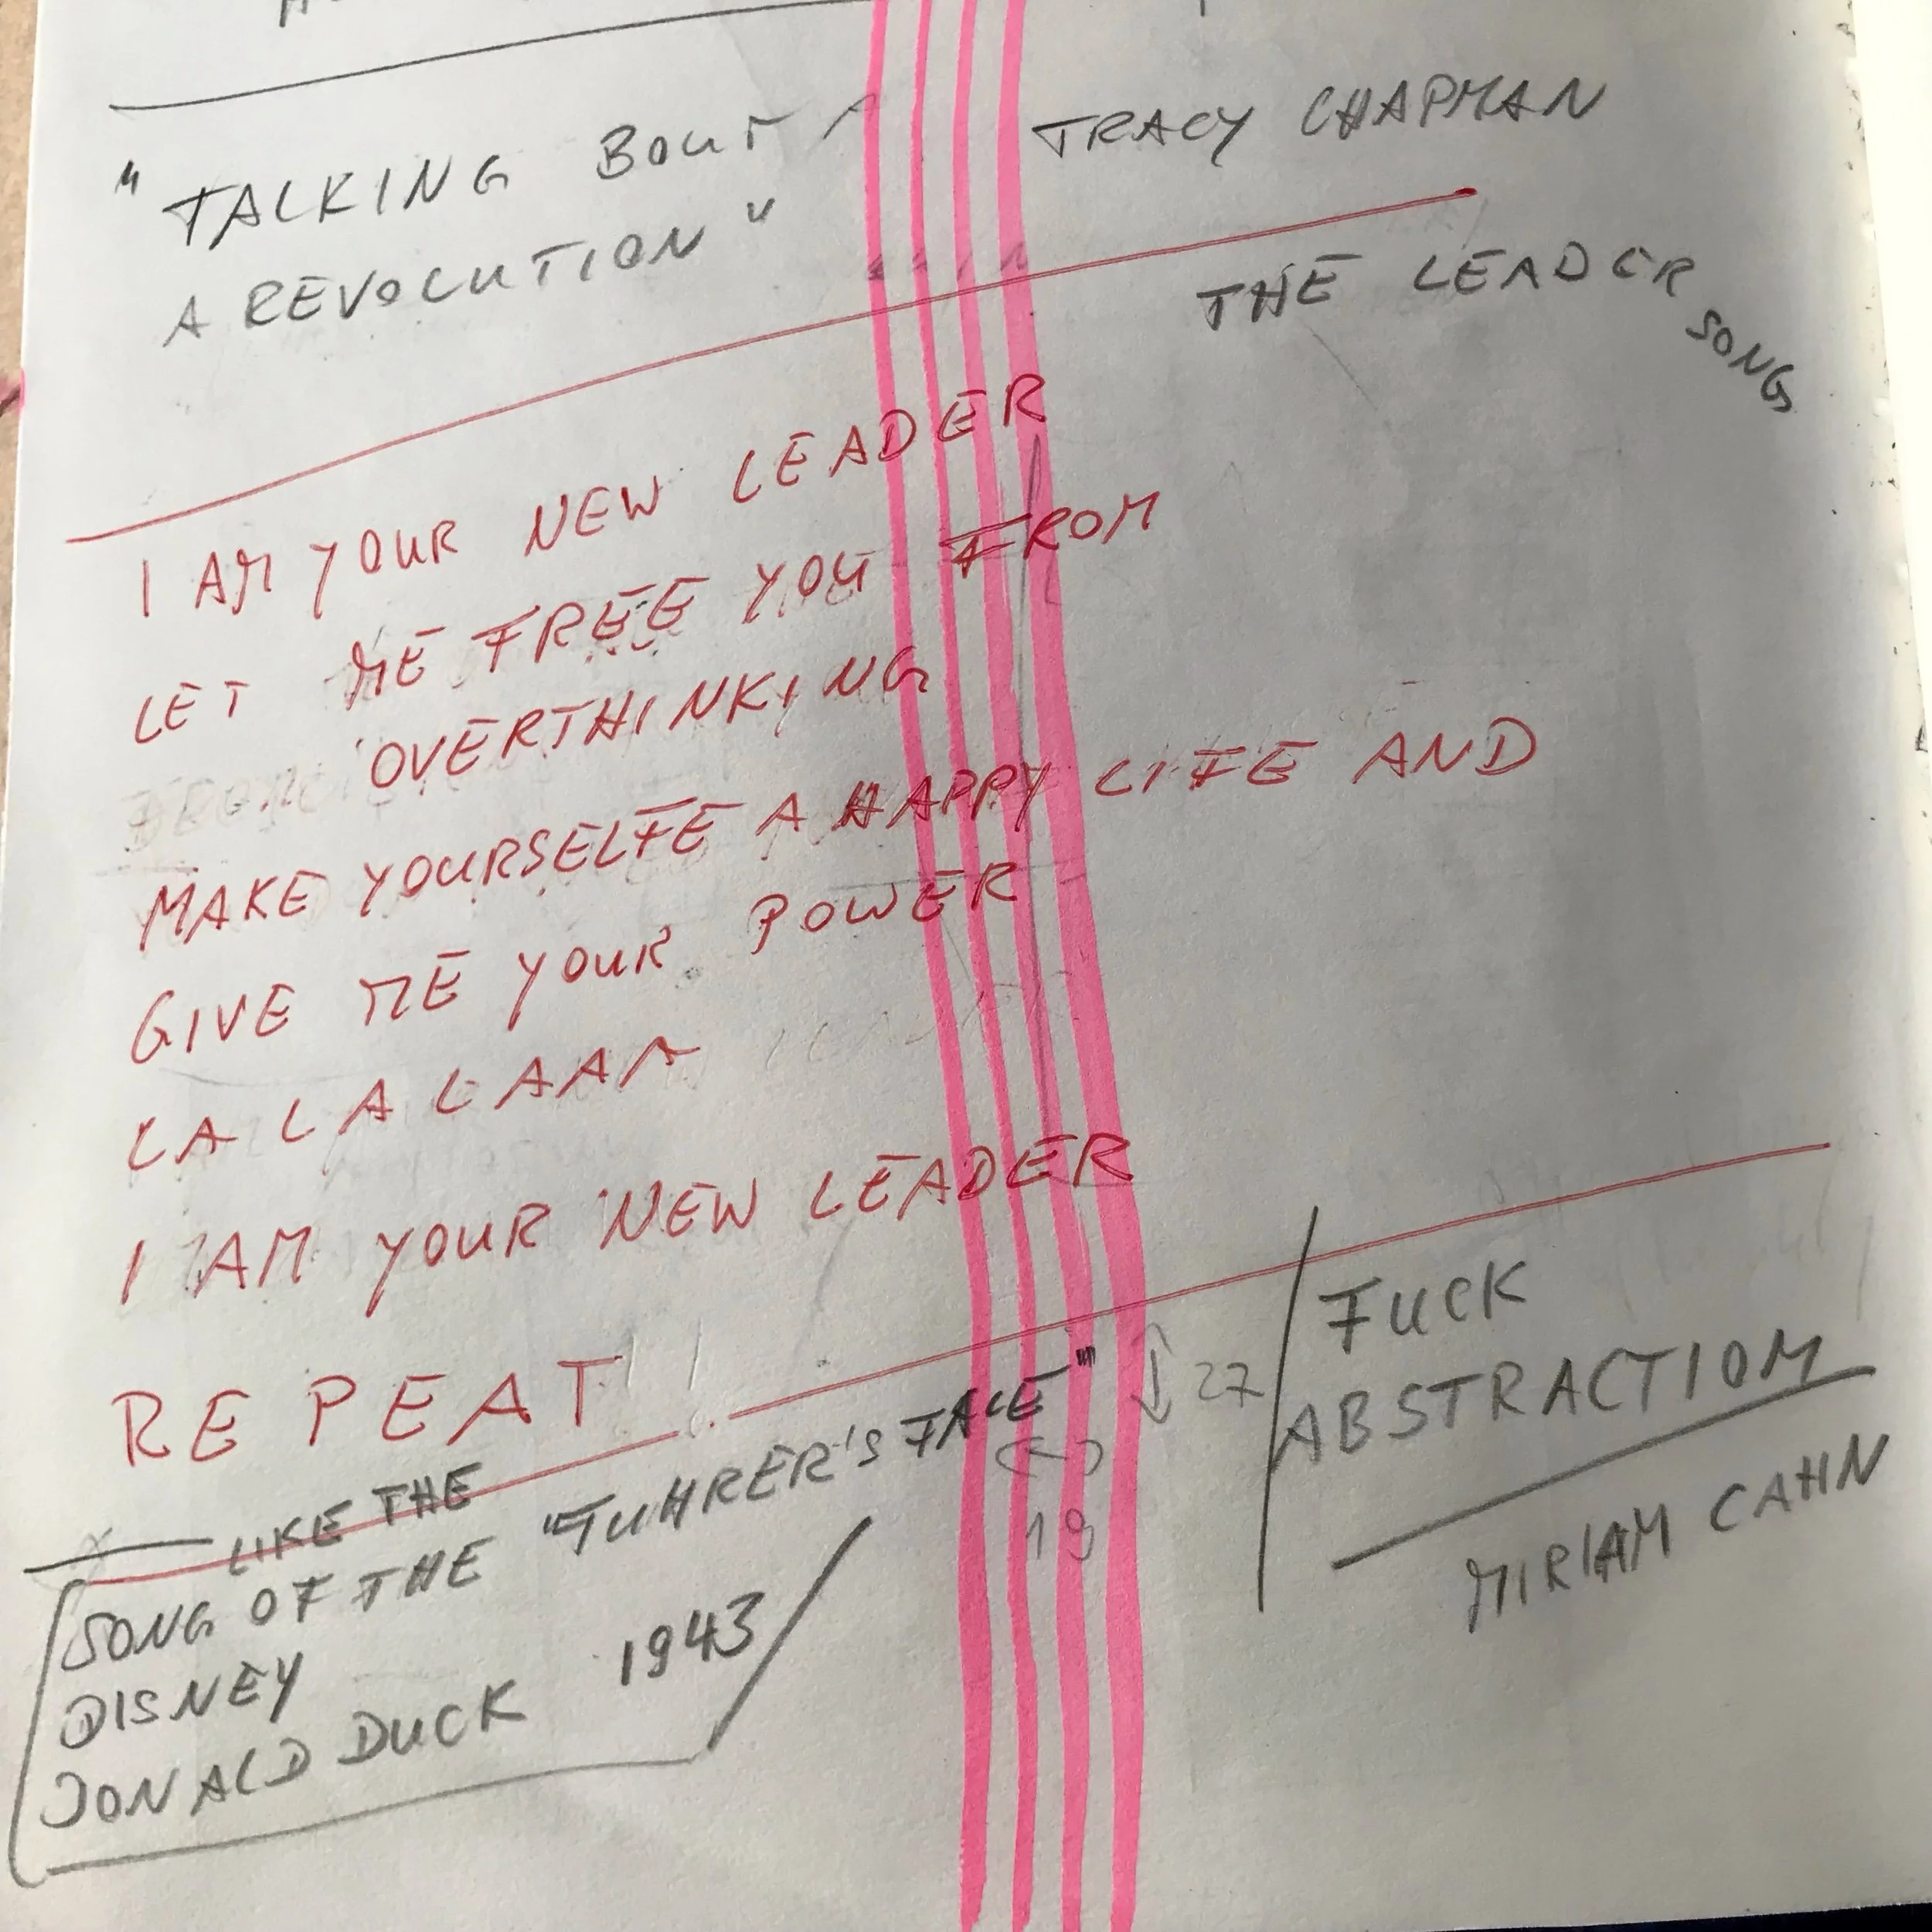 "TALKING BOUT
A REVOLUTION"
TRACY CHAPMAN
THE LEADER
SONG
I AM YOUR NEW LEADER
LET ME FREE YOU FROM
OVERTHINKING
MAKE YOURSELFE A HAPPY LIFE AND
GIVE ME YOUR POWER
LA LA LAAAA
I AM YOUR NEW LEADER
REPEAT
LIKE THE
SONG OF THE "FUHRER'S FACE"
DISNEY
DONALD DUCK 1943
27
19
FUCK
ABSTRACTION
MIRIAM CAHN